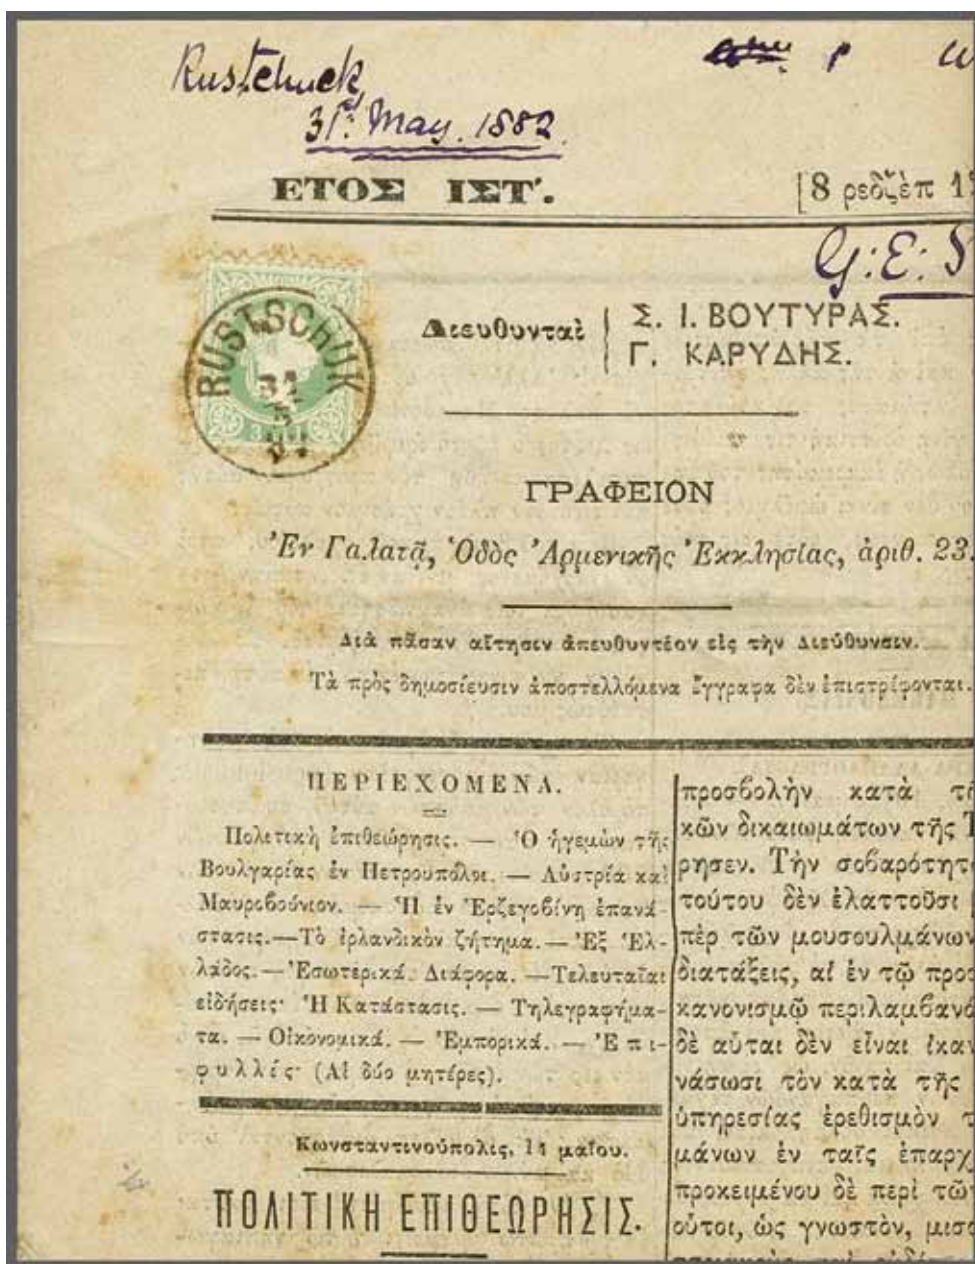 Rustchuck
31st May. 1882.
ΕΤΟΣ ΙΣΤ΄.
[8 ρεδζὲπ 1
G:E:S
RUSTSCHUK
31
5
Διευθυνταὶ
Σ. Ι. ΒΟΥΤΥΡΑΣ.
Γ. ΚΑΡΥΔΗΣ.
ΓΡΑΦΕΙΟΝ
Ἐν Γαλατᾷ, Ὁδὸς Ἀρμενικῆς Ἐκκλησίας, ἀριθ. 23.
Διὰ πᾶσαν αἴτησιν ἀπευθυντέον εἰς τὴν Διεύθυνσιν.
Τὰ πρὸς δημοσίευσιν ἀποστελλόμενα ἔγγραφα δὲν ἐπιστρέφονται.
ΠΕΡΙΕΧΟΜΕΝΑ.
Πολιτικὴ ἐπιθεώρησις. — Ὁ ἡγεμὼν τῆς
Βουλγαρίας ἐν Πετρουπόλει. — Αὐστρία καὶ
Μαυροβούνιον. — Ἡ ἐν Ἐρζεγοβίνῃ ἐπανά-
στασις.—Τὸ ἰρλανδικὸν ζήτημα.— Ἐξ Ἑλ-
λάδος.— Ἐσωτερικά. Διάφορα. —Τελευταῖαι
εἰδήσεις· Ἡ Κατάστασις. — Τηλεγραφήμα-
τα. — Οἰκονομικά. — Ἐμπορικά. — Ἐπι-
φυλλίς· (Αἱ δύο μητέρες).
Κωνσταντινούπολις, 14 μαΐου.
ΠΟΛΙΤΙΚΗ ΕΠΙΘΕΩΡΗΣΙΣ.
προσβολὴν κατὰ τῆ
κῶν δικαιωμάτων τῆς Τ
ρησεν. Τὴν σοβαρότητ
τούτου δὲν ἐλαττοῦσι
πὲρ τῶν μουσουλμάνων
διατάξεις, αἱ ἐν τῷ προ
κανονισμῷ περιλαμβανό
δὲ αὗται δὲν εἶναι ἱκαν
νάσωσι τὸν κατὰ τῆς
ὑπηρεσίας ἐρεθισμὸν τ
μάνων ἐν ταῖς ἐπαρχ
προκειμένου δὲ περὶ τῶν
οὗτοι, ὡς γνωστὸν, μισ